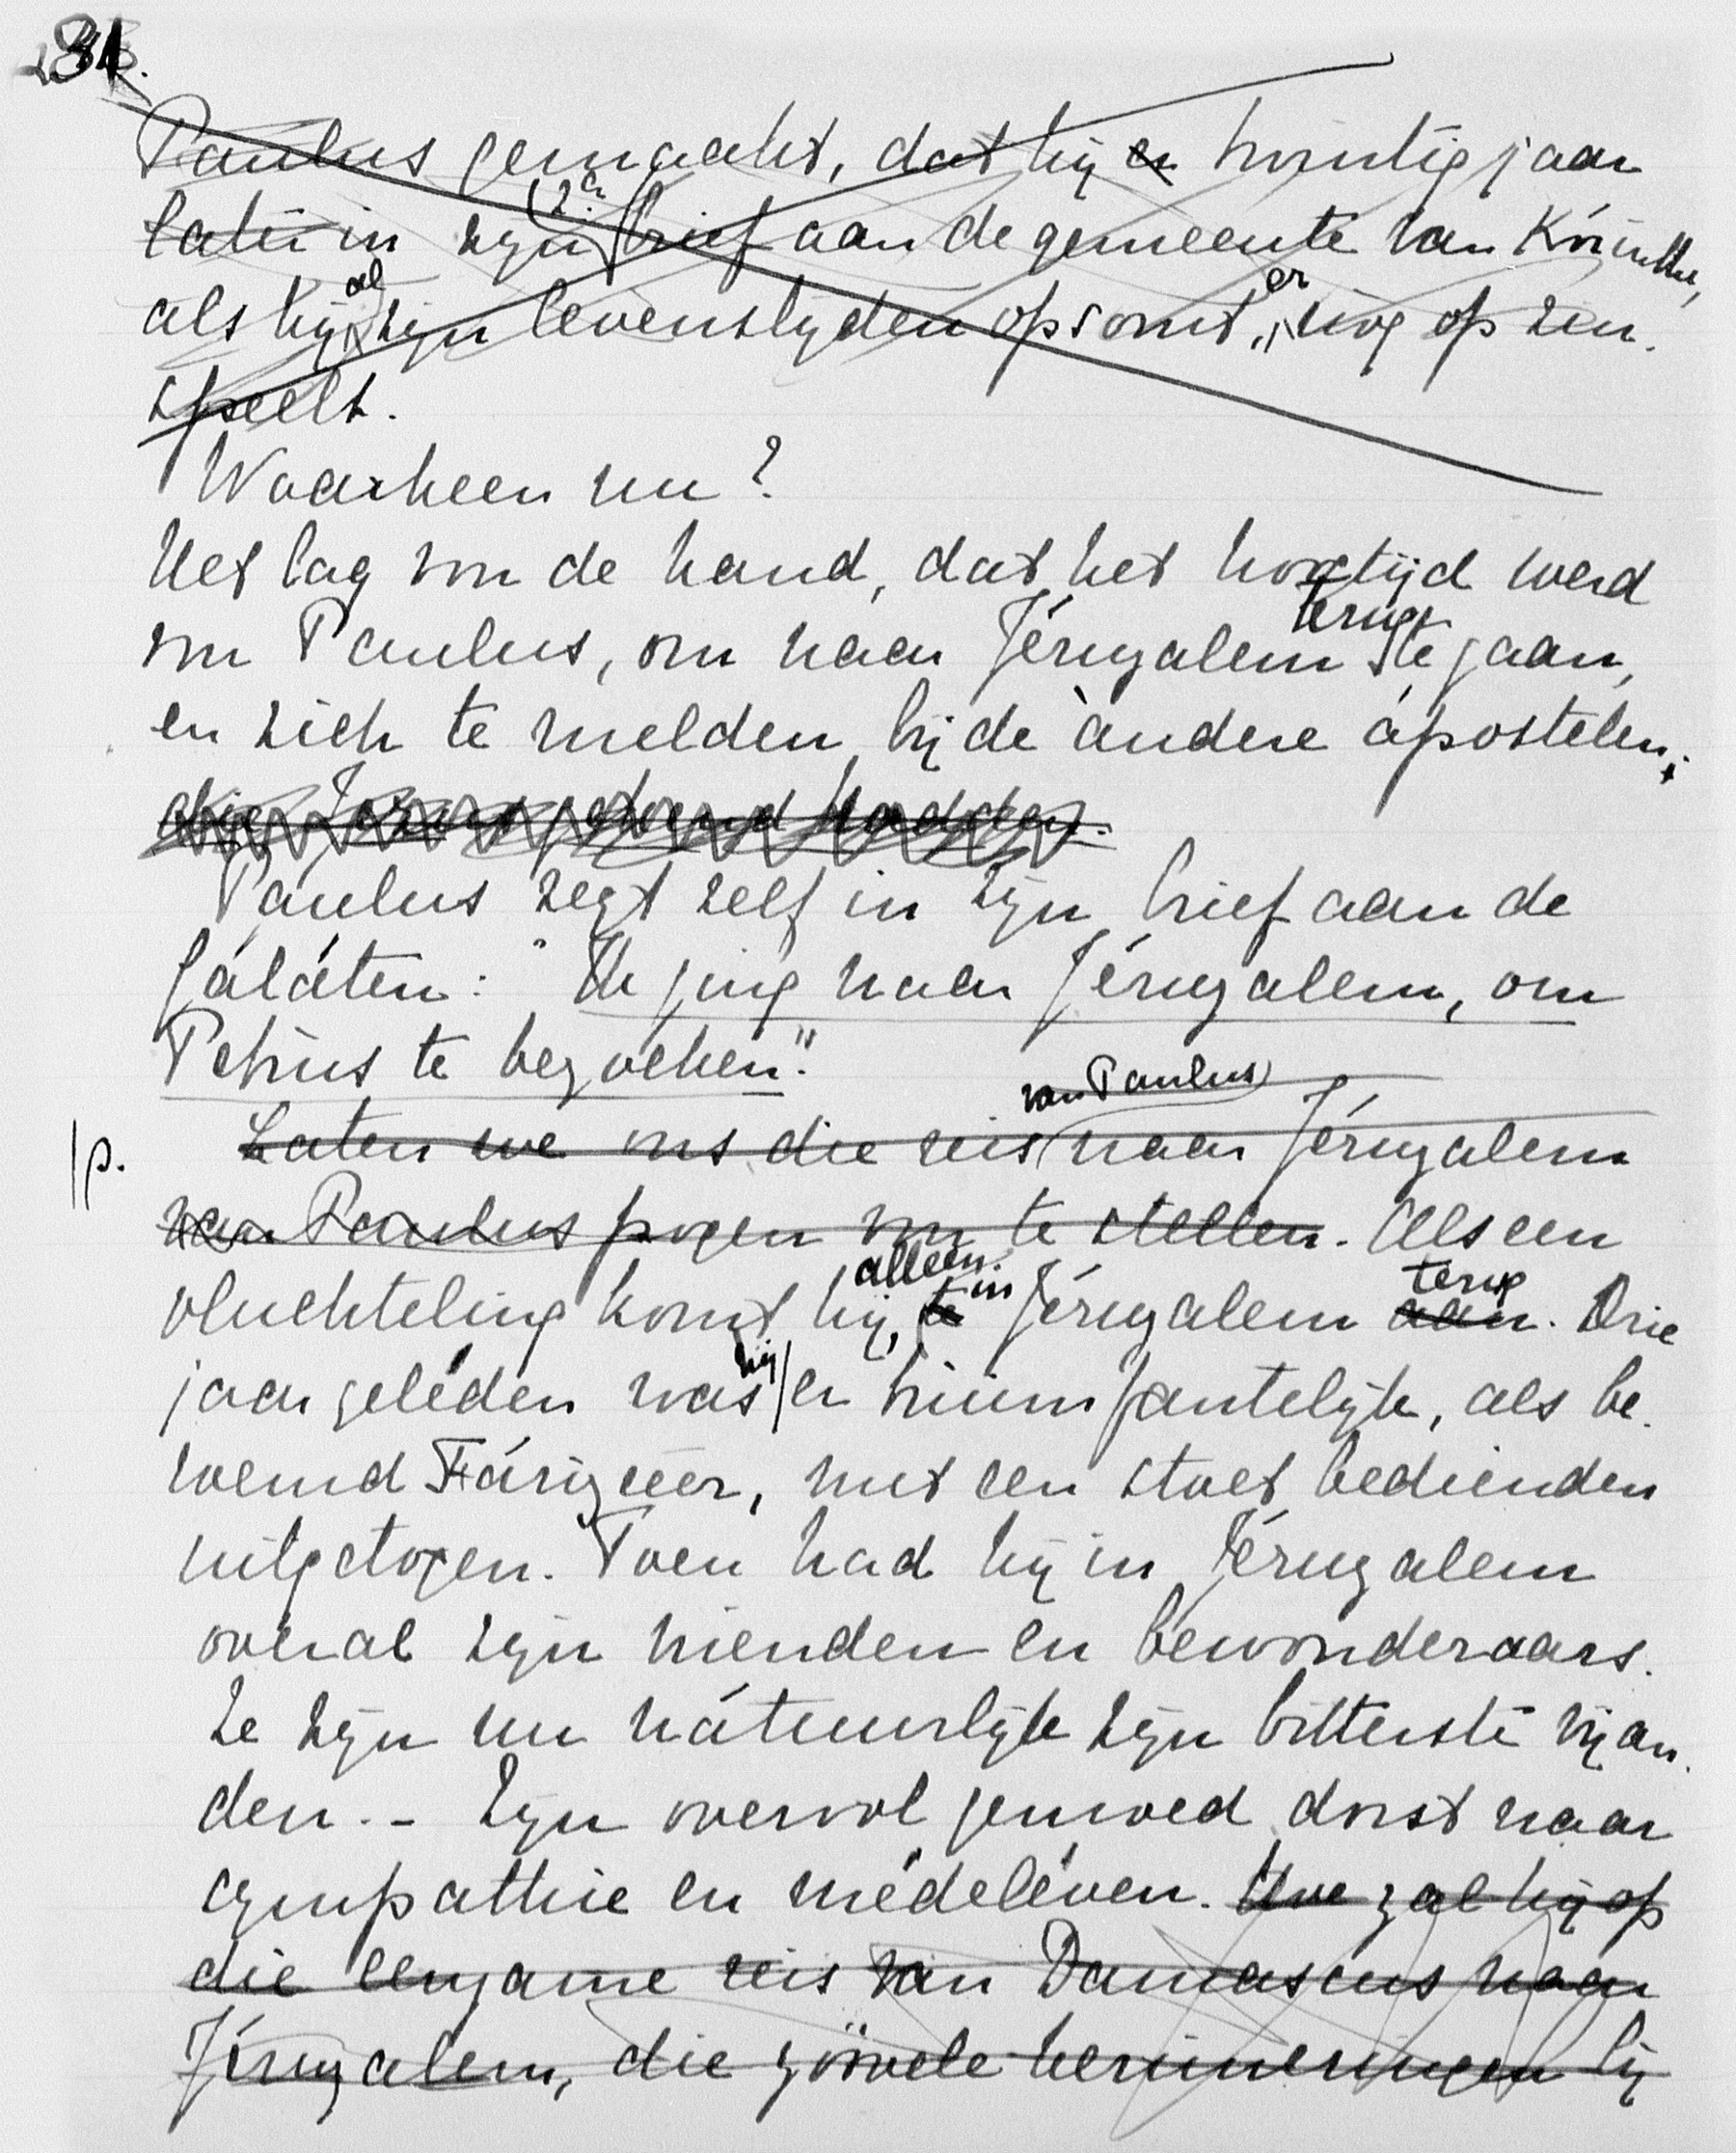 31.
Paulus gemaakt, dat hij er twintig jaar
later in zijn (2e) brief aan de gemeente van Korinthe,
als hij al zijn levenslijden opsomt, er nog op zin-
speelt.
Waarheen nu?
Het lag voor de hand, dat het hoogtijd werd
voor Paulus, om naar Jéruzalem terug te gaan,
en zich te melden bij de andere ápostelen,
die Jezus gekend hadden.
Paulus zegt zelf in zijn brief aan de
Gáláten: "Ik ging naar Jéruzalem, om
Petrus te bezoeken."
p. Laten we ons die reis van Paulus naar Jéruzalem
van Paulus pogen voor te stellen. Als een
vluchteling komt hij, te alleen in Jéruzalem aan terug. Drie
jaar geléden was hij er triumfantelijk, als be-
roemd Fárizeër, met een stoet bedienden
uitgetogen. Toen had hij in Jéruzalem
overal zijn vrienden en bewonderaars.
Ze zijn nu nátuurlijk zijn bitterste vijan-
den. - Zijn overvol gemoed dorst naar
sympathie en médeléven. Hoe zal hij op
die eenzame reis van Damascus naar
Jéruzalem, die zoovele herinneringen bij